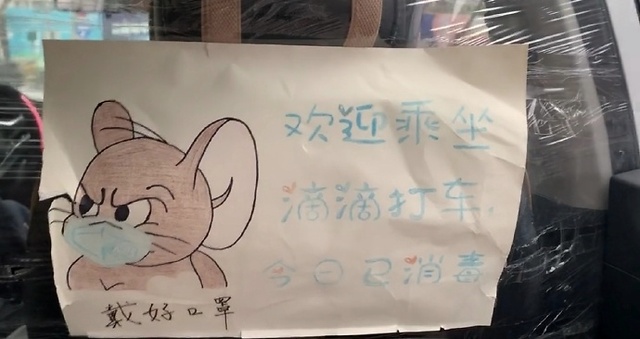 欢迎乘坐
滴滴打车.
今日已消毒
戴好口罩